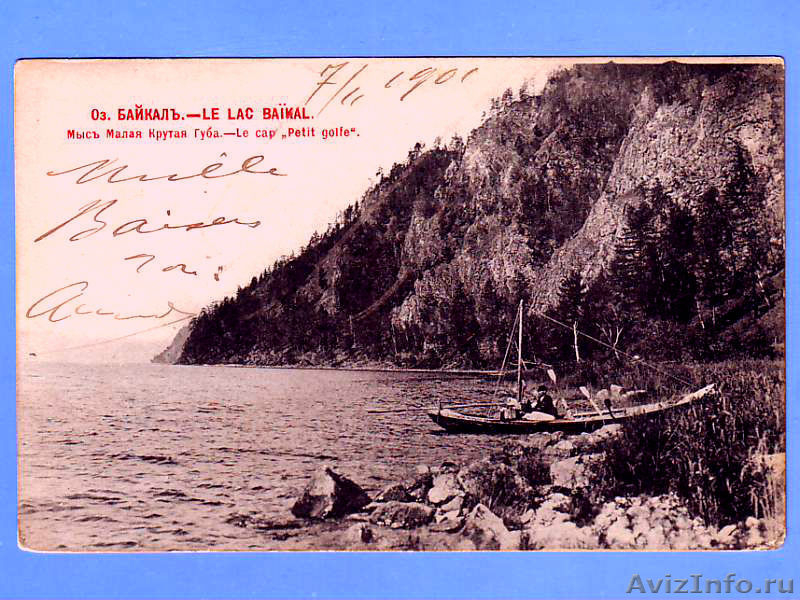 7/11 1901
Оз. БАЙКАЛЪ.—LE LAC BAÏKAL.
Мысъ Малая Крутая Губа.—Le cap „Petit golfe“.
Mille
Baisers
Armand
AvizInfo.ru